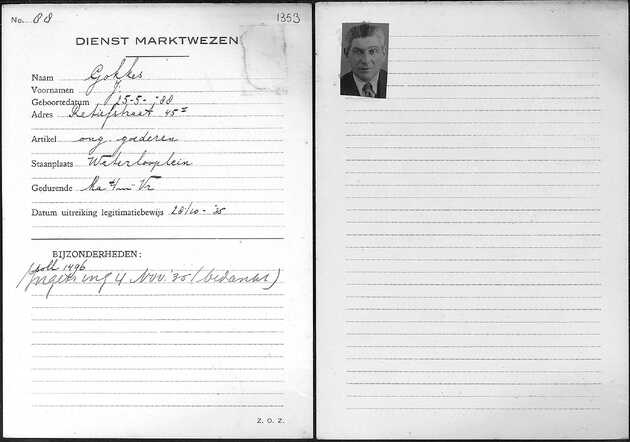 No. 88 1353
DIENST MARKTWEZEN
Naam Gokkes
Voornamen J.
Geboortedatum 25-5-'88
Adres Retiefstraat 45 I
Artikel ong. goederen
Staanplaats Waterlooplein
Gedurende Ma t/m Vr
Datum uitreiking legitimatiebewijs 28/10-'35
BIJZONDERHEDEN:
soll 1496
ing 4 Nov. '35 (bedankt)
Z. O. Z.